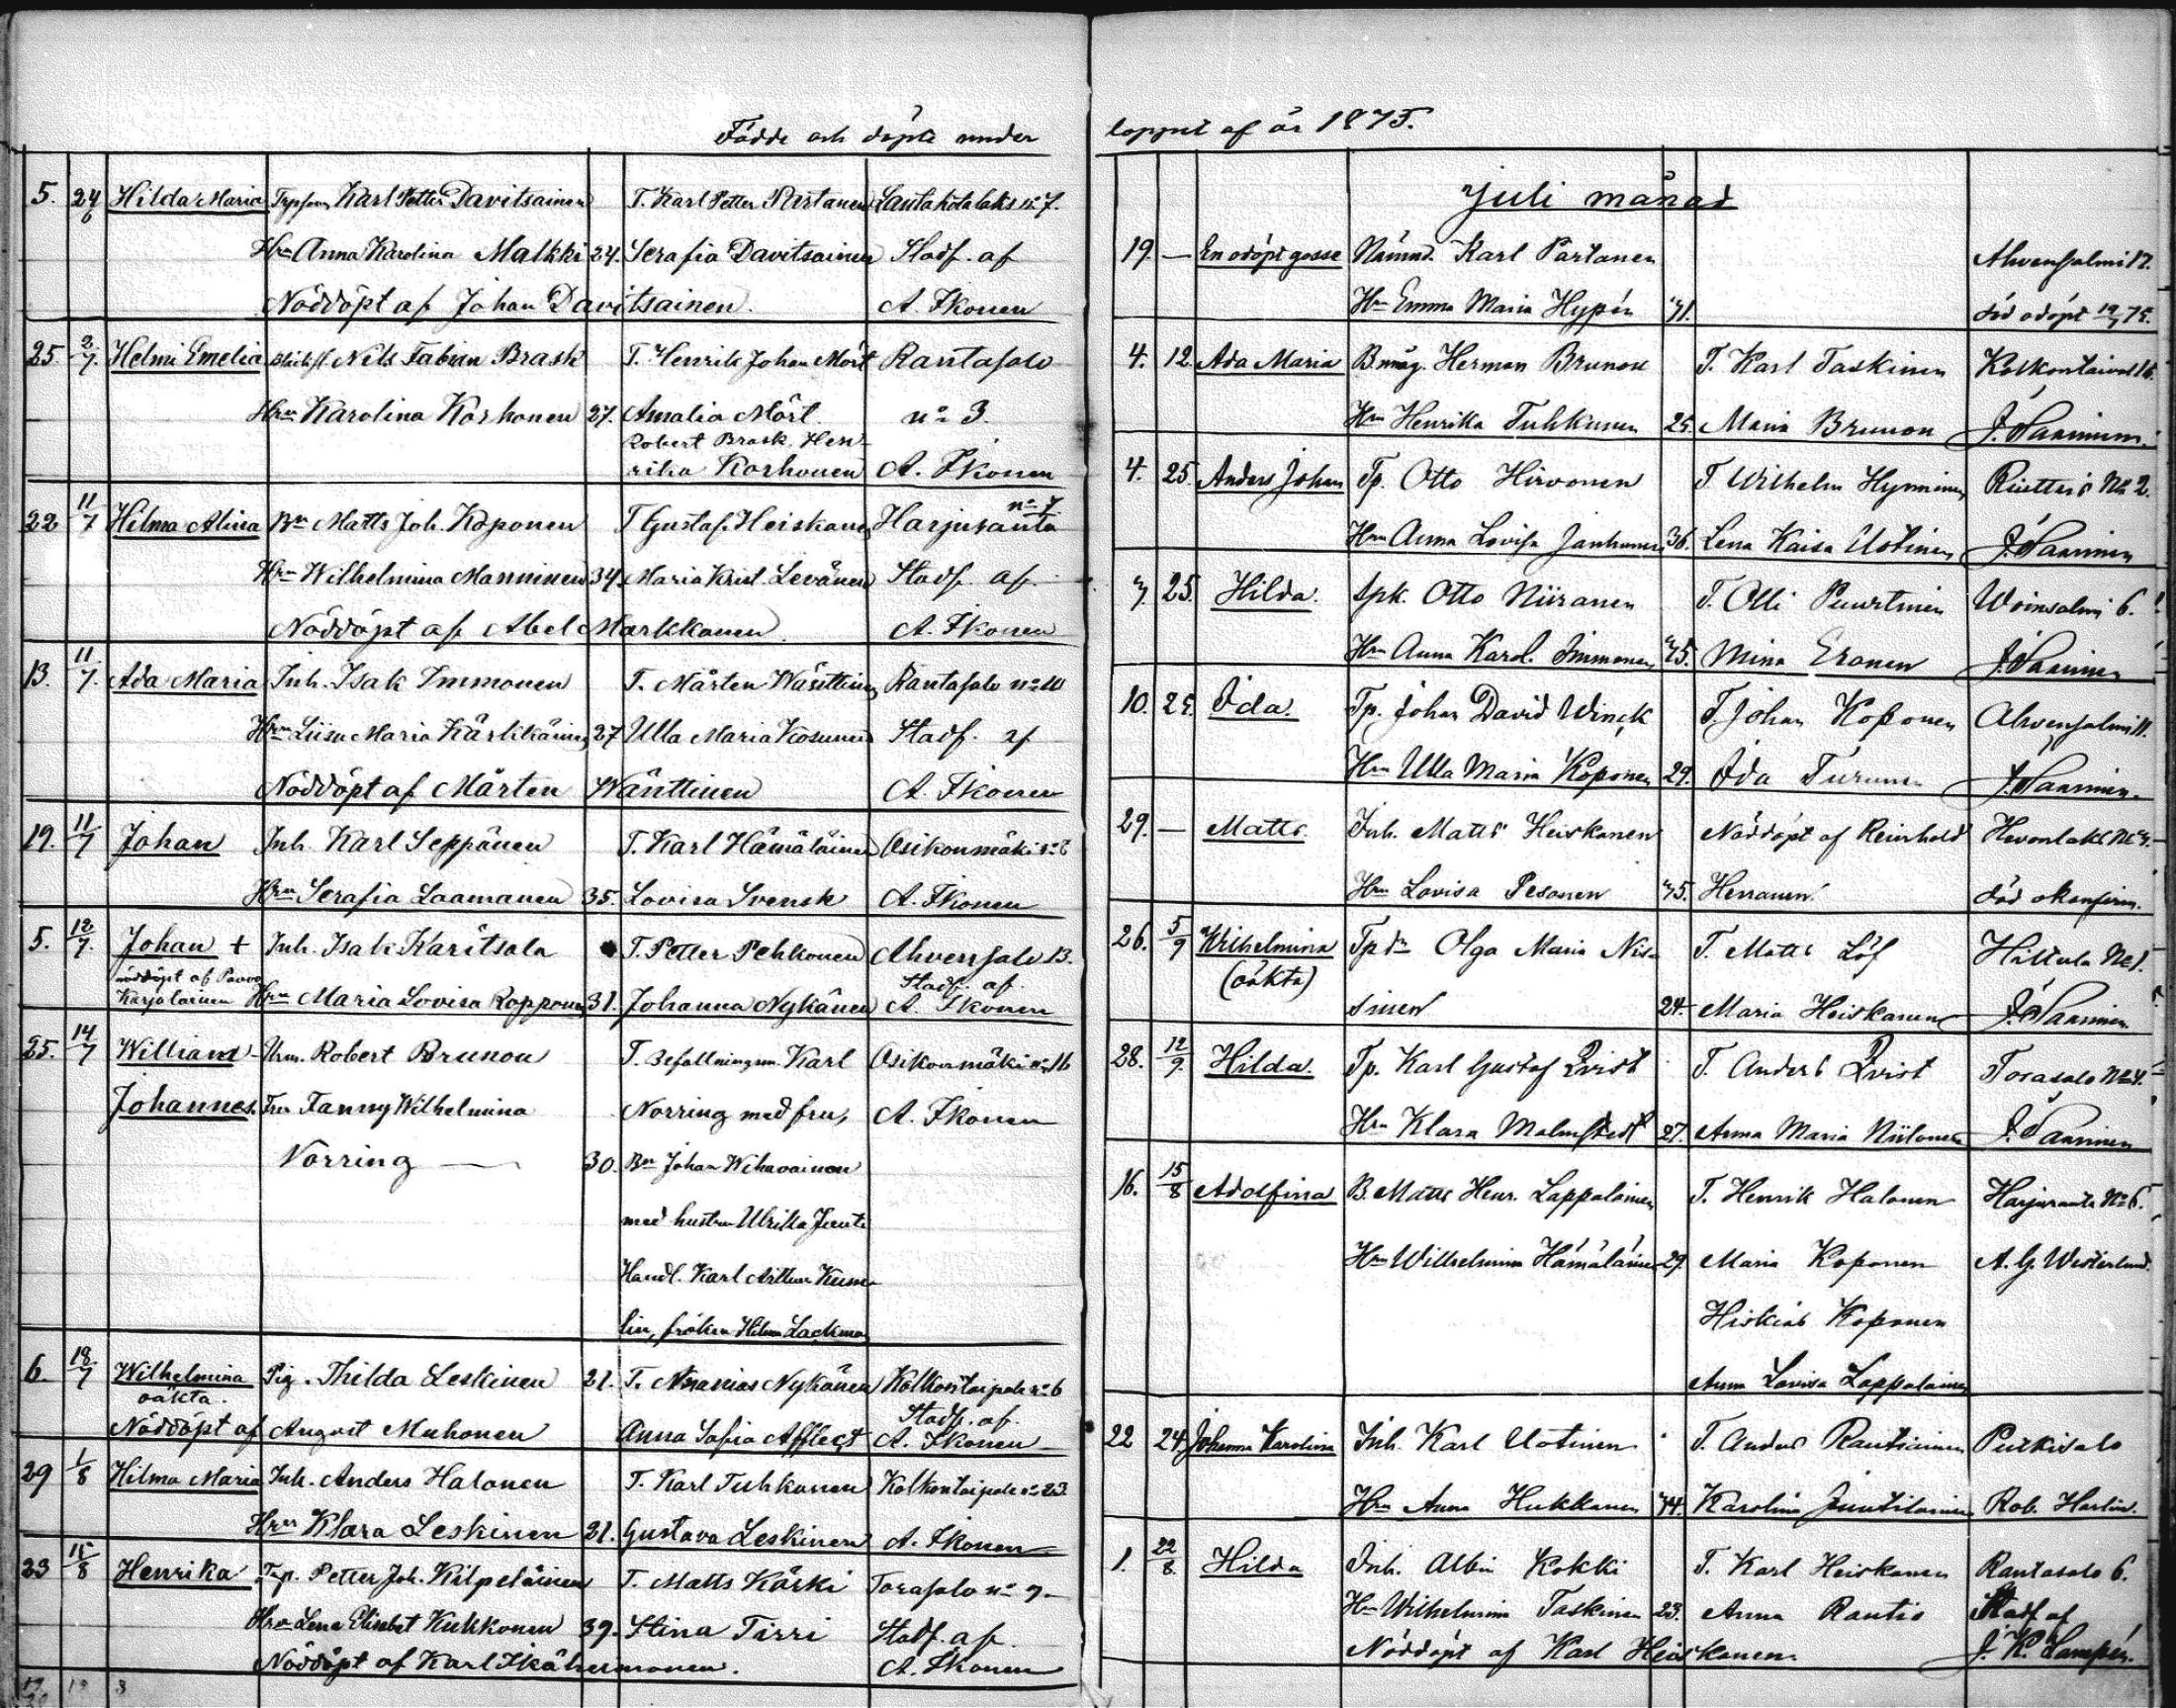 Födde och döpte under
5. 24/6 Hilda Maria Karl Petter Davitsainen T. Karl Petter Partanen Lantakotalaks no 7.
Hrn Anna Karolina Malkki 24. Serafia Davitsainen Stadf. af
Nöddöpt af Johan Davitsainen. A. Ikonen
25. 2/7. Helmi Emelia Nils Fabian Brask T. Henrik Johan Mört Rantasalo
Hrn Karolina Korhonen 27. Amalia Mört. no 3.
Robert Brask. Hen-
rika Korhonen A. Ikonen
22 11/7 Helma Alina Bn Matts Joh. Koponen T Gustaf Heiskanen Harjuranta no 7
Hrn Wilhelmina Manninen 34. Maria Krist. Levänen Stadf. af
Nöddöpt af Abel Markkanen. A. Ikonen
13. 11/7. Ada Maria Inh. Isak Immonen T. Mårten Wänttinen Rantasalo no 10
Hrn Liisa Maria Kärkkäinen 27 Ulla Maria Kosunen Stadf. af
Nöddöpt af Mårten Wänttinen A. Ikonen
19. 11/7 Johan Inh. Karl Seppänen T. Karl Hämäläinen Osikonmäki no 8
Hrn Serafia Laamanen 35. Lovisa Svensk A. Ikonen
5. 12/7. Johan + Inh. Isak Karitsala T. Petter Pehkonen Ahvensalo 13.
nöddöpt af Paavo Stadf. af
Karjalainen Hrn Maria Lovisa Ropponen 31. Johanna Nykänen A. Ikonen
25. 14/7 William Urm. Robert Brunou T. Befallningsm. Karl Osikonmäki no 16
Johannes. Fru Fanny Wilhelmina Norring med fru, A. Ikonen
Norring 30. Bn Johan Wihavainen
med hustru Ulrika
Handl. Karl Arthur Kum-
lin, fröken Hilma Lackman
6. 18/7 Wilhelmina Pig. Thilda Leskinen 21. T. Ananias Nykänen Kolkontaipale no 6
oäkta. Stadf. af
Nöddöpt af August Muhonen Anna Sofia Afflect A. Ikonen
29 1/8 Hilma Maria Inh. Anders Halonen T. Karl Tuhkanen Kolkontaipale no 23.
Hrn Klara Leskinen 21. Gustava Leskinen A. Ikonen
23 15/8 Henrika Trp. Petter Joh. Kilpeläinen T. Matts Kärki Torasalo no 9
Hrn Lena Elisabet Kukkonen 39. Stina Tirri Stadf. af
Nöddöpt af Karl Ikähermonen. A. Ikonen
loppet af år 1875.
Juli månad
19. — En odöpt gosse Nämnd. Karl Partanen Ahvensalmi 17.
Hrn Emma Maria Hypén 41. död odöpt 19/7 75.
4. 12. Ada Maria B.måg. Herman Brunou T. Karl Taskinen
Hrn Henrika Tuhkunen 25. Maria Brunou J. Saarinen
4. 25. Anders Johan Tp. Otto Hirvonen T Wilhelm Hynninen No 2.
Hrn Anna Lovisa Janhunen 36. Lena Kaisa Ustinen J. Saarinen
7. 25. Hilda. Spk. Otto Niiranen T. Olli Puurtinen Woinsalmi 6.
Hrn Anna Karol. Immonen 45. Mina Eronen J. Saarinen
10. 25. Ida. Tp. Johan David Winck T. Johan Koponen Ahvensalmi 11.
Hrn Ulla Maria Koponen 29. Ida Turunen J. Saarinen.
29. — Matts. Inh. Matts Heiskanen Nöddöpt af Reinhold
Hrn Lovisa Pesonen 45. Henanen. död okonfirm.
26. 5/9 Wilhelmina Tpdr Olga Maria Nis- T. Matts Löf Hiltula No 1.
(oäkta) sinen 24. Maria Heiskanen J. Saarinen
28. 12/9. Hilda. Tp. Karl Gustaf Qvist T. Anders Qvist Torasalo No 4.
Hrn Klara Malmstedt 27. Anna Maria Niilonen J. Saarinen
16. 15/8 Adolfina B. Matts Henr. Lappalainen T. Henrik Halonen Harjuranta No 6.
Hrn Wilhelmina Hämäläinen 29. Maria Koponen A. G. Westerlund.
Hiskias Koponen
Anna Lovisa Lappalainen
22 24. Johanna Karolina Inh. Karl Uotinen T. Anders Rautiainen Putkisalo
Hrn Anna Hukkanen 44. Karolina Juutilainen Rob. Harlin.
1. 22/8. Hilda Inh. Albin Kokki T. Karl Heiskanen Rantasalo 6.
Hrn Wilhelmina Taskinen 23. Anna Rautio Stadf af
Nöddöpt af Karl Heiskanen. J. K. Lampén.